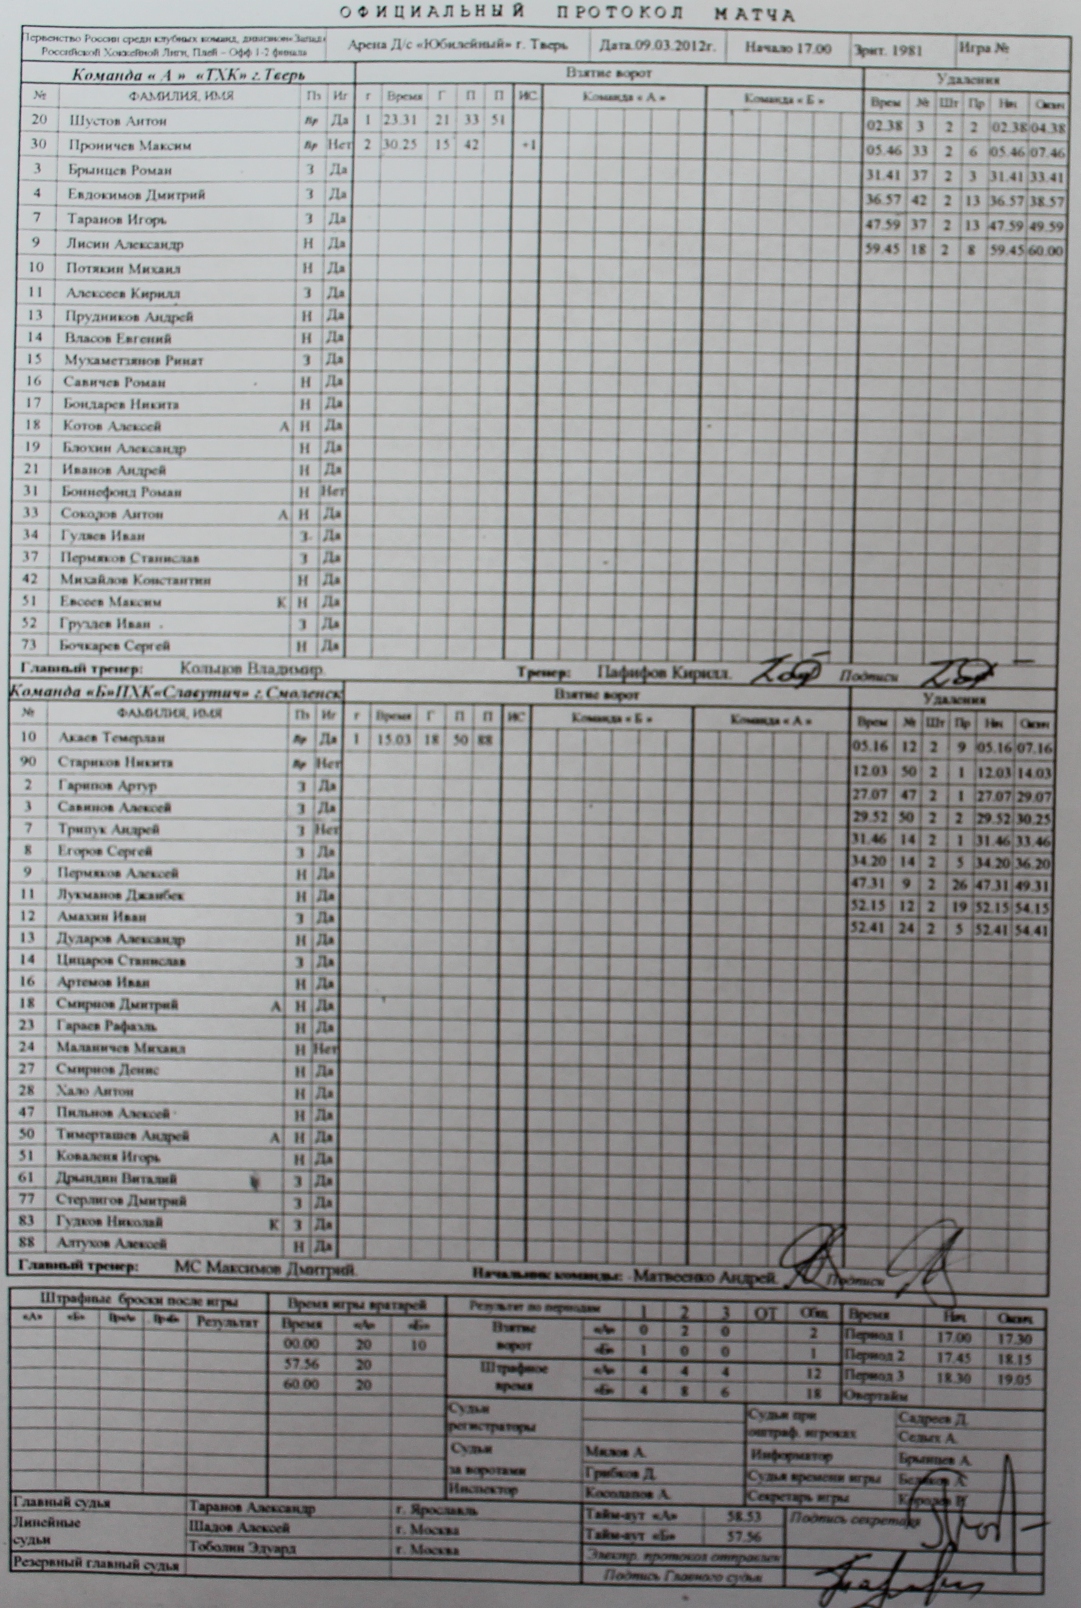 ОФИЦИАЛЬНЫЙ ПРОТОКОЛ МАТЧА
Первенство России среди клубных команд, дивизион«Запад»
Российской Хоккейной Лиги, Плей – Офф 1-2 финала
Арена Д/с «Юбилейный» г. Тверь Дата.09.03.2012г. Начало 17.00 Зрит. 1981 Игра №
Команда « А » «ТХК» г.Тверь Взятие ворот Удаления
№ ФАМИЛИЯ, ИМЯ Пз Иг г Время Г П П ИС Команда « А » Команда « Б » Врем № Шт Пр Нач Оконч
20 Шустов Антон Вр Да 1 23.31 21 33 51 02.38 3 2 2 02.38 04.38
30 Проничев Максим Вр Нет 2 30.25 15 42 +1 05.46 33 2 6 05.46 07.46
3 Брынцев Роман З Да 31.41 37 2 3 31.41 33.41
4 Евдокимов Дмитрий З Да 36.57 42 2 13 36.57 38.57
7 Таранов Игорь З Да 47.59 37 2 13 47.59 49.59
9 Лисин Александр Н Да 59.45 18 2 8 59.45 60.00
10 Потякин Михаил Н Да
11 Алексеев Кирилл З Да
13 Прудников Андрей Н Да
14 Власов Евгений Н Да
15 Мухаметзянов Ринат З Да
16 Савичев Роман Н Да
17 Бондарев Никита Н Да
18 Котов Алексей А Н Да
19 Блохин Александр Н Да
21 Иванов Андрей Н Да
31 Боннефонд Роман Н Нет
33 Соколов Антон А Н Да
34 Гуляев Иван З Да
37 Пермяков Станислав З Да
42 Михайлов Константин Н Да
51 Евсеев Максим К Н Да
52 Груздев Иван З Да
73 Бочкарев Сергей Н Да
Главный тренер: Кольцов Владимир. Тренер: Пафифов Кирилл. Подписи
Команда «Б»ПХК«Славутич» г.Смоленск Взятие ворот Удаления
№ ФАМИЛИЯ, ИМЯ Пз Иг г Время Г П П ИС Команда « Б » Команда « А » Врем № Шт Пр Нач Оконч
10 Акаев Темерлан Вр Да 1 15.03 18 50 88 05.16 12 2 9 05.16 07.16
90 Стариков Никита Вр Нет 12.03 50 2 1 12.03 14.03
2 Гарипов Артур З Да 27.07 47 2 1 27.07 29.07
3 Савинов Алексей З Да 29.52 50 2 2 29.52 30.25
7 Трипук Андрей З Нет 31.46 14 2 1 31.46 33.46
8 Егоров Сергей З Да 34.20 14 2 5 34.20 36.20
9 Пермяков Алексей Н Да 47.31 9 2 26 47.31 49.31
11 Лукманов Джанбек Н Да 52.15 12 2 19 52.15 54.15
12 Амахин Иван З Да 52.41 24 2 5 52.41 54.41
13 Дударов Александр Н Да
14 Цицаров Станислав З Да
16 Артемов Иван Н Да
18 Смирнов Дмитрий А Н Да
23 Гараев Рафаэль Н Да
24 Маланичев Михаил Н Нет
27 Смирнов Денис Н Да
28 Хало Антон Н Да
47 Пильнов Алексей Н Да
50 Тимерташев Андрей А Н Да
51 Коваленя Игорь Н Да
61 Дрындин Виталий З Да
77 Стерлигов Дмитрий З Да
83 Гудков Николай К З Да
88 Алтухов Алексей Н Да
Главный тренер: МС Максимов Дмитрий. Начальник команды: Матвеенко Андрей. Подписи
Штрафные броски после игры Время игры вратарей Результат по периодам 1 2 3 ОТ Общ Время Нач Оконч
«А» «Б» Вр«А» Вр«Б» Результат Время «А» «Б» Взятие ворот «А» 0 2 0 2 Период 1 17.00 17.30
00.00 20 10 «Б» 1 0 0 1 Период 2 17.45 18.15
57.56 20 Штрафное время «А» 4 4 4 12 Период 3 18.30 19.05
60.00 20 «Б» 4 8 6 18 Овертайм
Судьи регистраторы Судьи при оштраф. игроках Садреев Д.
Седых А.
Судьи за воротами Милов А. Информатор Брынцев А.
Грибков Д. Судья времени игры Беляков А.
Инспектор Косолапов А. Секретарь игры
Главный судья Таранов Александр г. Ярославль Тайм-аут «А» 58.53 Подпись секретаря
Линейные судьи Шадов Алексей г. Москва Тайм-аут «Б» 57.56
Тоболин Эдуард г. Москва Электр. протокол отправлен
Резервный главный судья Подпись Главного судьи